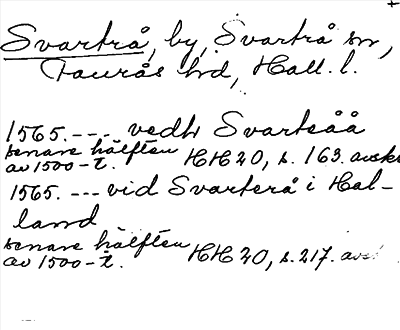 Svartrå, by, Svartrå sn,
Faurås hd, Hall. l.
1565. --- vedh Svartsåå
senare hälften
av 1500-t. HH 20, s. 163. avskr
1565. --- vid Svarterå i Hal-
land
senare hälften
av 1500-t. HH 20, s. 217. avs